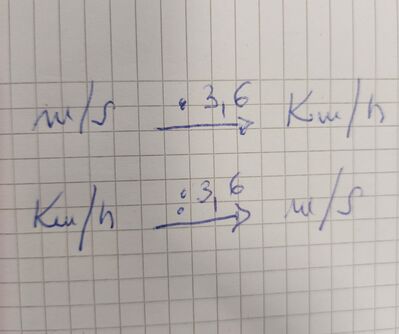 m/s · 3,6 → Km/h
Km/h : 3,6 → m/s